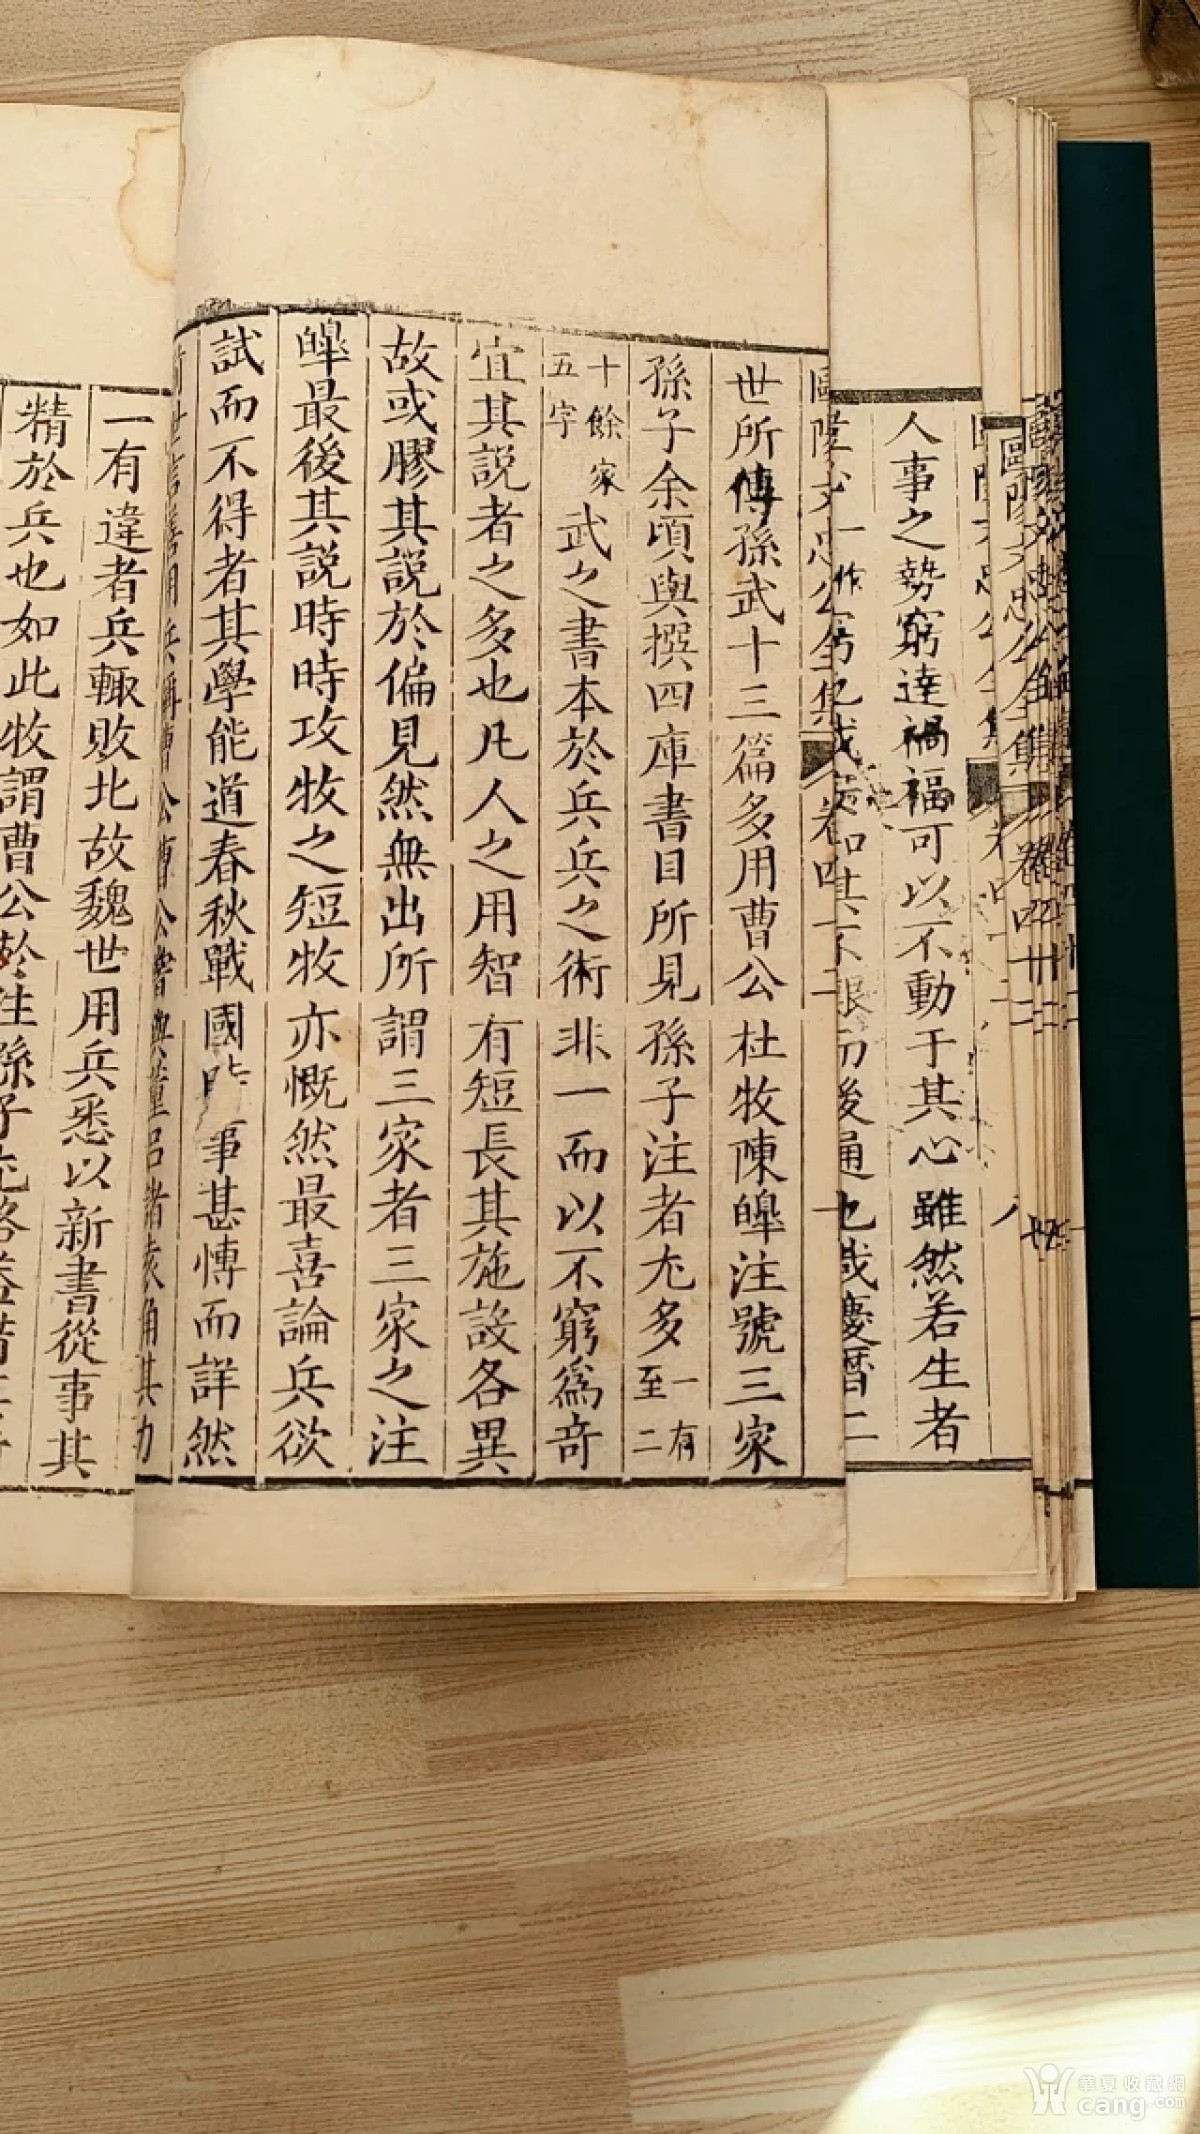 人事之勢窮達禍福可以不動于其心雖然若生者
歐陽文忠公全集 卷四十二
世所傳孫武十三篇多用曹公杜牧陳皥注號三家
孫子余頃與撰四庫書目所見孫子注者尤多一有至二
十餘家五字武之書本於兵兵之術非一而以不窮爲奇
宜其說者之多也凡人之用智有短長其施設各異
故或膠其說於偏見然無出所謂三家者三家之注
皥最後其說時時攻牧之短牧亦慨然最喜論兵欲
試而不得者其學能道春秋戰國時事甚愽而詳然
前世言善用兵稱曹公曹公嘗與董呂諸袁角其力
一有違者兵輙敗北故魏世用兵悉以新書從事其
精於兵也如此牧謂曹公於注孫子尤略
華夏收藏網
cang.com